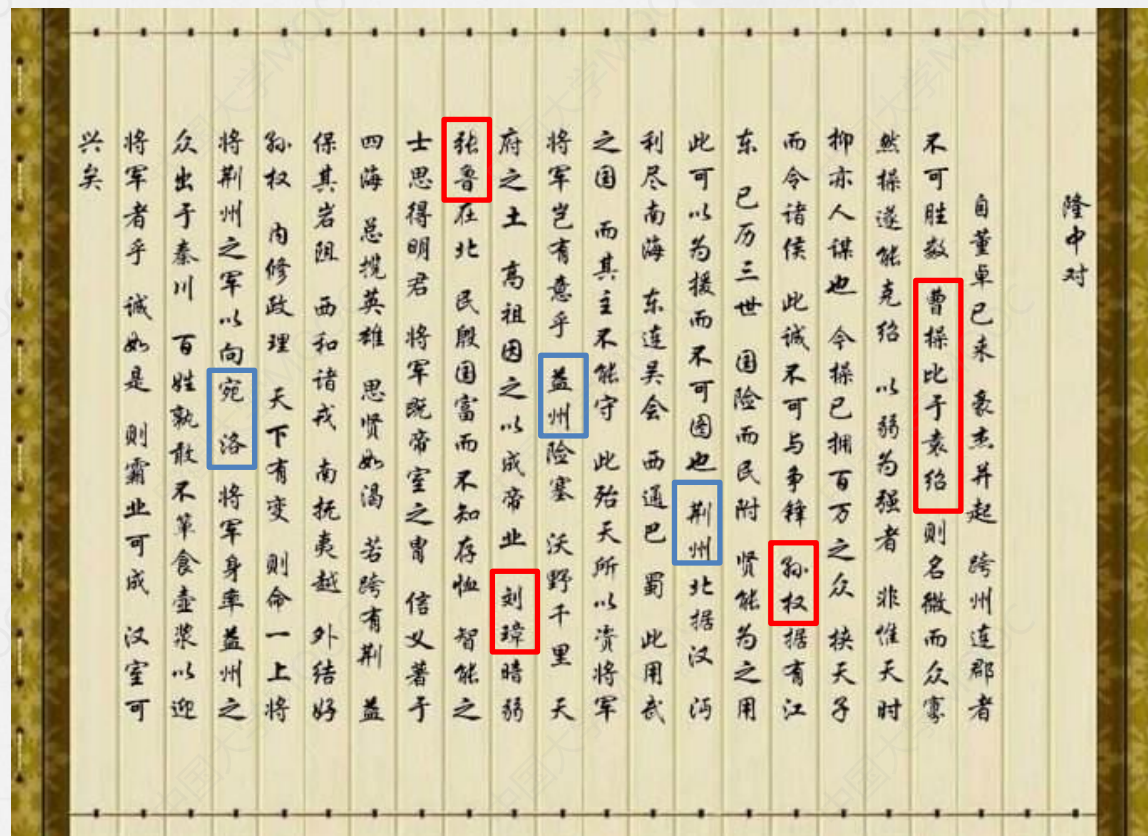 隆中对
自董卓已来 豪杰并起 跨州连郡者
不可胜数 曹操比于袁绍 则名微而众寡
然操遂能克绍 以弱为强者 非惟天时
抑亦人谋也 今操已拥百万之众 挟天子
而令诸侯 此诚不可与争锋 孙权据有江
东 已历三世 国险而民附 贤能为之用
此可以为援而不可图也 荆州北据汉 沔
利尽南海 东连吴会 西通巴 蜀 此用武
之国 而其主不能守 此殆天所以资将军
将军岂有意乎 益州险塞 沃野千里 天
府之土 高祖因之以成帝业 刘璋暗弱
张鲁在北 民殷国富而不知存恤 智能之
士思得明君 将军既帝室之胄 信义著于
四海 总揽英雄 思贤如渴 若跨有荆 益
保其岩阻 西和诸戎 南抚夷越 外结好
孙权 内修政理 天下有变 则命一上将
将荆州之军以向宛 洛 将军身率益州之
众出于秦川 百姓孰敢不箪食壶浆以迎
将军者乎 诚如是 则霸业可成 汉室可
兴矣
中国大学MOOC